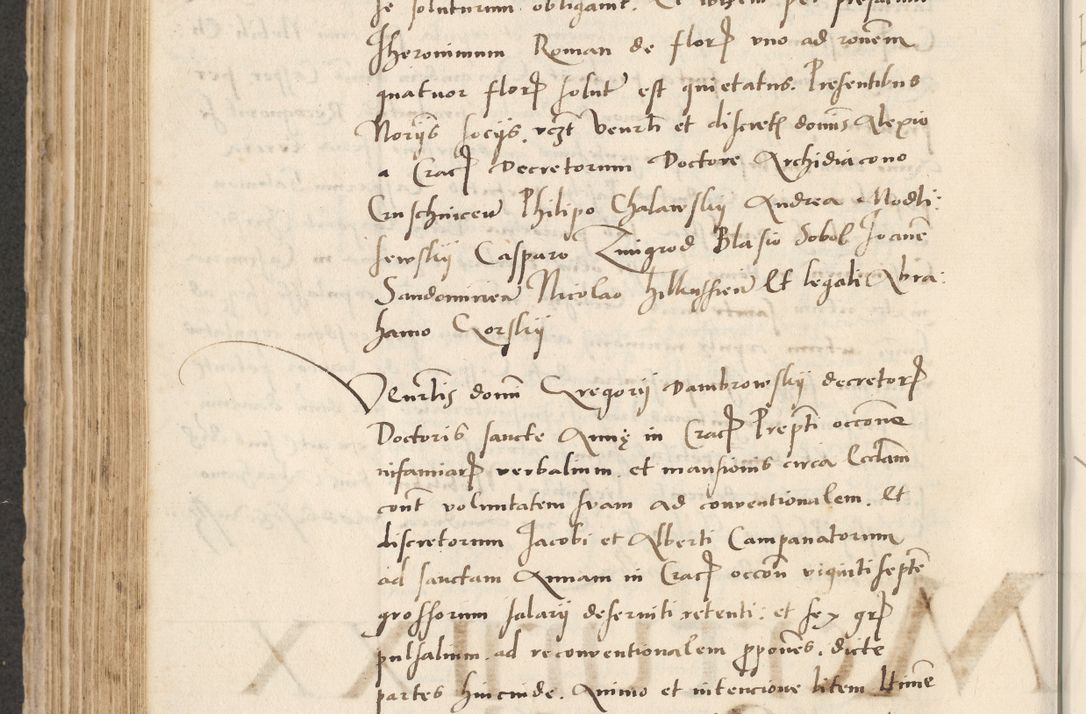 se soluturum obligavit. Et idem per
Jheronimum Roman de florꝭ vno ad ronem
quatuor florꝭ solut est quietatus. Presentibus
Noriis sociis. vczt Venerli et discretis dominis Alexio
a Cracꝭ Decretorum Doctore Archidiacono
Cruschnicen Philipo Chalawskij Andrea Modli:
sewskij Casparo Zmigrod Blasio Sobol Joanne
Sandomirien Nicolao et legali Abra:
hamo Gorskij
Venrlis domini Gregorij Dambrowskij decretorꝭ
Doctoris sancte Annę in Cracꝭ Prepti occone
infamiarꝭ verbalium. et mansionis circa Ecclam
cont voluntatem suam ad conventionalem. Et
discretorum Jacobi et Alberti Campanatorum
ad sanctam Annam in Cracꝭ occon viginti septe
grossorum salarij deserviti retenti: et sex grꝭ
pulsalium. ad reconventionalem ppones. dicte
partes hincinde. Animo et intencione litem